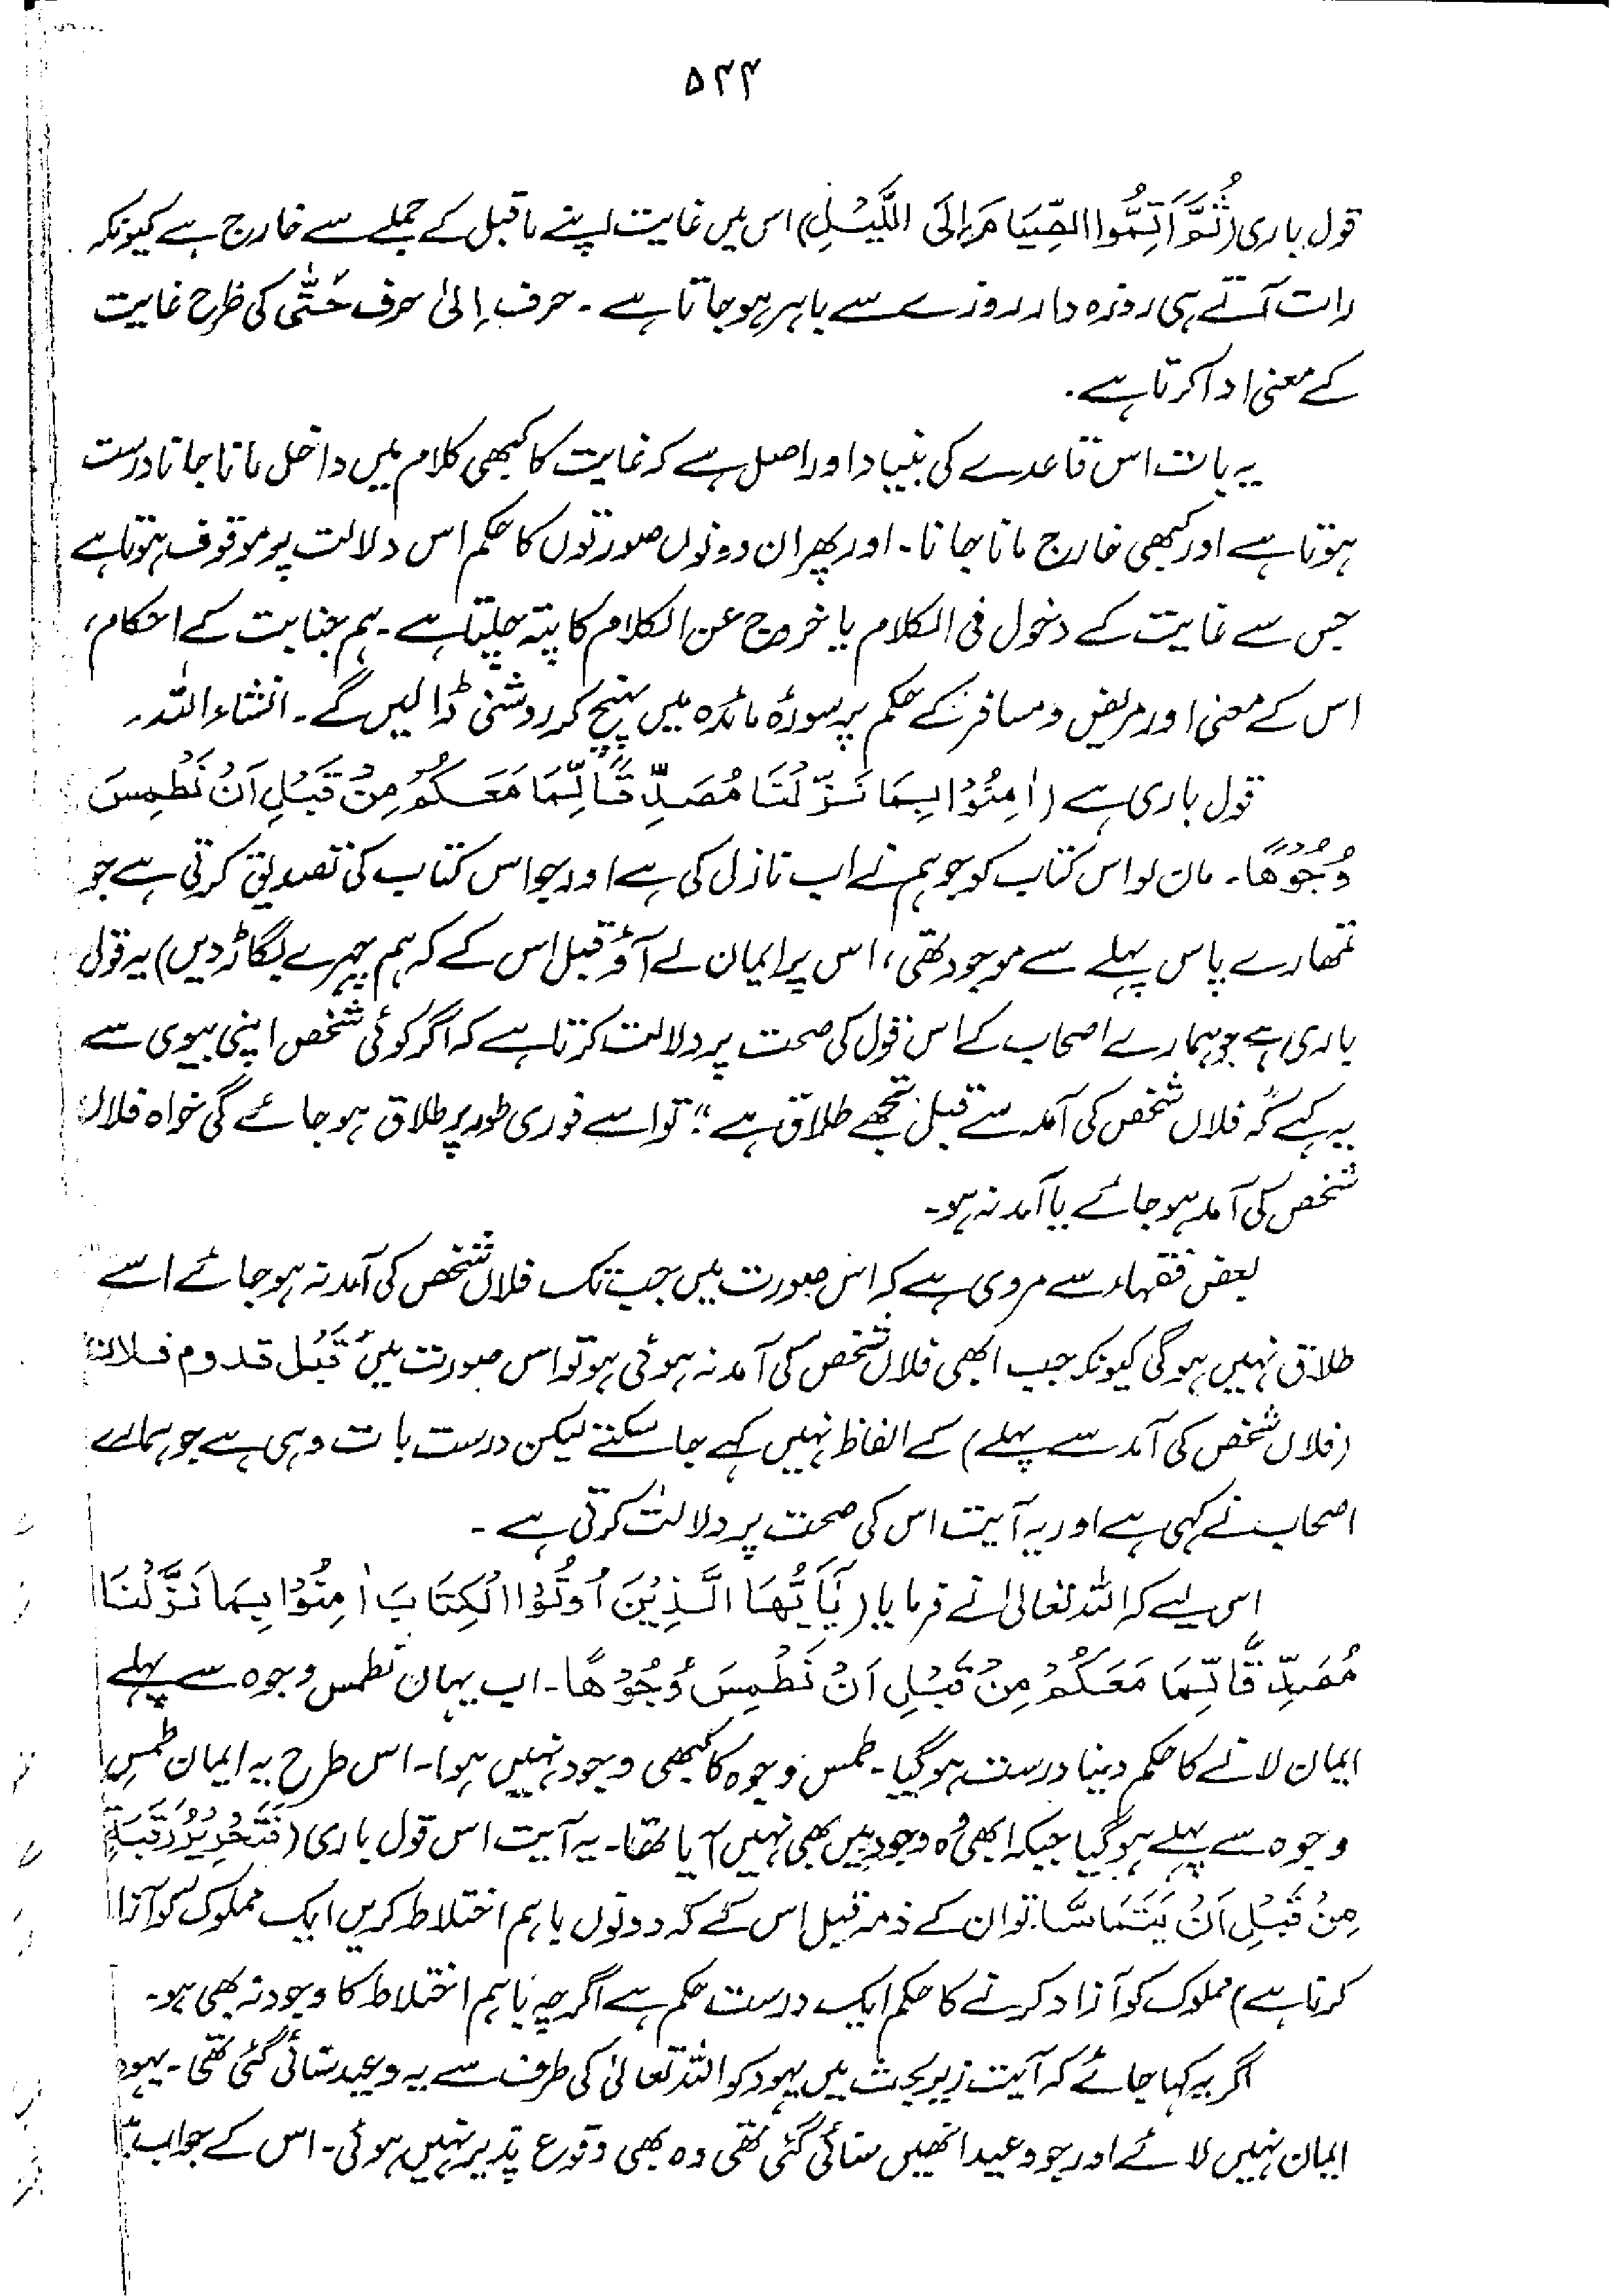 ۵۴۴
قول باری (ثُمَّ اَتِمُّوا الصِّیَامَ اِلَی اللَّیْلِ) اس میں غایت اپنے ماقبل کے جملے سے خارج ہے کیونکہ
رات آتے ہی روزہ دار روزے سے باہر ہو جاتا ہے۔ حرف اِلیٰ حرف حَتّٰی کی طرح غایت
کے معنی ادا کرتا ہے۔
یہ بات اس قاعدے کی بنیاد اور اصل ہے کہ غایت کا کبھی کلام میں داخل مانا جانا درست
ہوتا ہے اور کبھی خارج مانا جانا۔ اور پھر ان دونوں صورتوں کا حکم اس دلالت پر موقوف ہوتا ہے
جس سے غایت کے دخول فی الکلام یا خروج عن الکلام کا پتہ چلتا ہے۔ ہم جنابت کے احکام،
اس کے معنی اور مریض و مسافر کے حکم پر سورۂ مائدہ میں پہنچ کر روشنی ڈالیں گے۔ انشاء اللہ۔
قول باری ہے (اٰمِنُوْا بِمَا نَزَّلْنَا مُصَدِّقًا لِّمَا مَعَكُمْ مِنْ قَبْلِ اَنْ نَطْمِسَ
وُجُوْهًا۔ مان لو اس کتاب کو جو ہم نے اب نازل کی ہے اور جو اس کتاب کی تصدیق کرتی ہے جو
تمھارے پاس پہلے سے موجود تھی، اس پر ایمان لے آؤ قبل اس کے کہ ہم چہرے بگاڑ دیں) یہ قول
باری ہے جو ہمارے اصحاب کے اس قول کی صحت پر دلالت کرتا ہے کہ اگر کوئی شخص اپنی بیوی سے
یہ کہے کہ "فلاں شخص کی آمد سے قبل تجھے طلاق ہے"، تو اسے فوری طور پر طلاق ہو جائے گی خواہ فلاں
شخص کی آمد ہو جائے یا آمد نہ ہو۔
بعض فقہاء سے مروی ہے کہ اس صورت میں جب تک فلاں شخص کی آمد نہ ہو جائے اسے
طلاق نہیں ہوگی کیونکہ جب ابھی فلاں شخص کی آمد نہ ہوئی ہو تو اس صورت میں "قَبْل قدوم فلان"
(فلاں شخص کی آمد سے پہلے) کے الفاظ نہیں کہے جا سکتے لیکن درست بات وہی ہے جو ہمارے
اصحاب نے کہی ہے اور یہ آیت اس کی صحت پر دلالت کرتی ہے۔
اس لیے کہ اللہ تعالیٰ نے فرمایا (یٰٓاَیُّهَا الَّذِیْنَ اُوْتُوا الْكِتَابَ اٰمِنُوْا بِمَا نَزَّلْنَا
مُصَدِّقًا لِّمَا مَعَكُمْ مِنْ قَبْلِ اَنْ نَطْمِسَ وُجُوْهًا۔ اب یہاں نطمس وجوہ سے پہلے
ایمان لانے کا حکم دینا درست ہو گیا۔ طمس وجوہ کا کبھی وجود نہیں ہوا۔ اس طرح یہ ایمان طمس
وجوہ سے پہلے ہو گیا جبکہ ابھی وہ وجود میں بھی نہیں آیا تھا۔ یہ آیت اس قول باری (فَتَحْرِیْرُ رَقَبَةٍ
مِنْ قَبْلِ اَنْ یَتَمَاسَّا۔ تو ان کے ذمہ قبل اس کے کہ دونوں باہم اختلاط کریں ایک مملوک کو آزا
کرنا ہے) مملوک کو آزاد کرنے کا حکم ایک درست حکم ہے اگرچہ باہم اختلاط کا وجود نہ بھی ہو۔
اگر یہ کہا جائے کہ آیت زیر بحث میں یہود کو اللہ تعالیٰ کی طرف سے یہ وعید سنائی گئی تھی۔ یہود
ایمان نہیں لائے اور جو وعید انھیں سنائی گئی تھی وہ بھی وقوع پذیر نہیں ہوئی۔ اس کے جواب